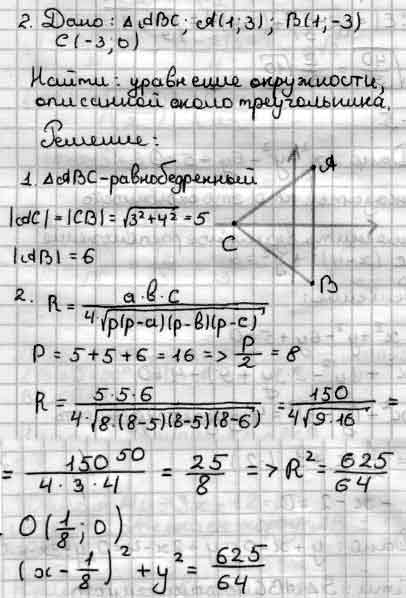 2. Дано: △ABC; A(1;3); B(1,-3)
C(-3;0)
Найти: уравнение окружности,
описанной около треугольника.
Решение:
1. △ABC-равнобедренный
|AC|=|CB|=√3²+4²=5
|AB|=6
A
C
B
2. R= a·b·c / 4·√p(p-a)(p-b)(p-c)
P=5+5+6=16=> P/2 = 8
R= 5·5·6 / 4·√8·(8-5)(8-5)(8-6) = 150 / 4√9·16 =
= 150 50 / 4·3·4 = 25/8 => R²= 625/64
O(1/8;0)
(x-1/8)²+y²= 625/64